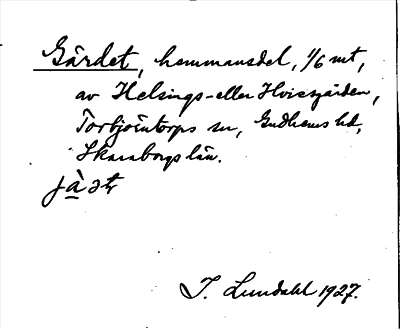 Gärdet, hemmansdel, 1/6 mt,
av Helsings- eller Hvisgärden,
Torbjörntorps sn, Gudhems hd,
Skaraborgs län.
I. Lundahl 1927.